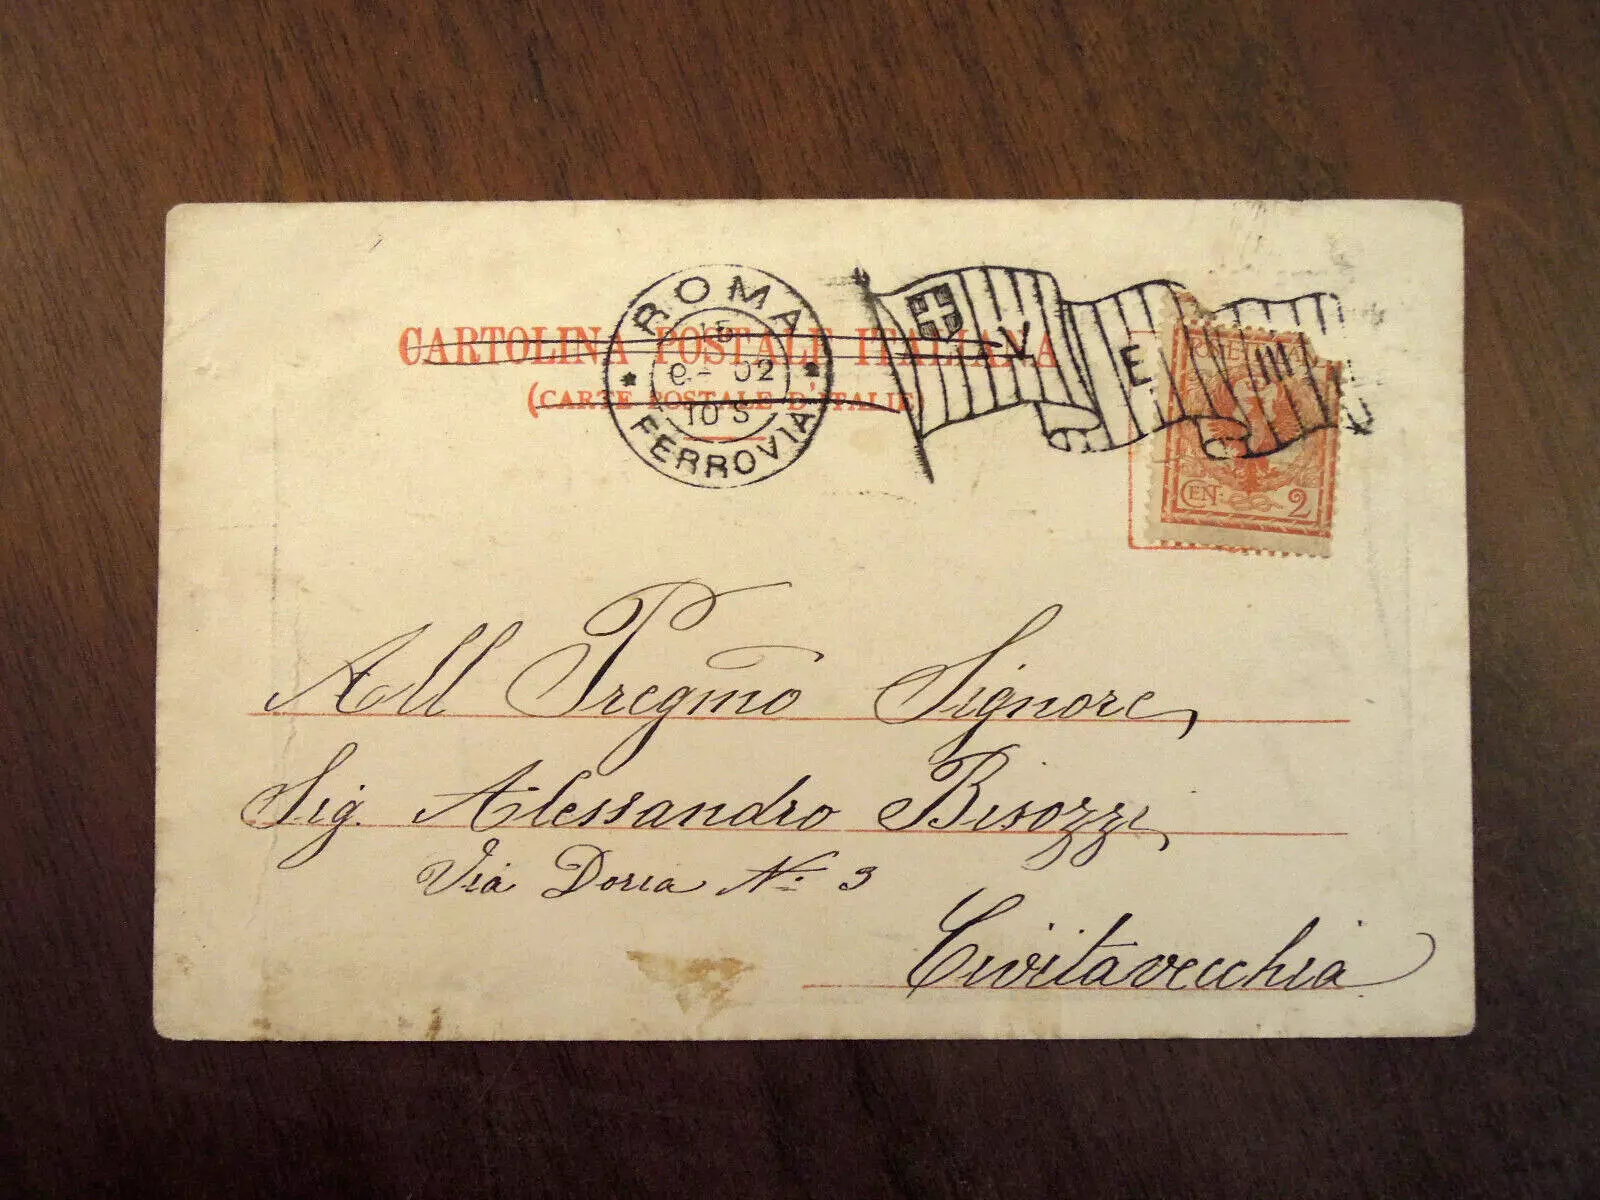 ROMA
15
9 - 02
10 S
* FERROVIA *
V E III
CARTOLINA POSTALE ITALIANA
(CARTE POSTALE D'ITALIE
CEN. 2
All Pregmo Signore,
Sig. Alessandro Bisozzi,
Via Doria No: 3
Civitavecchia